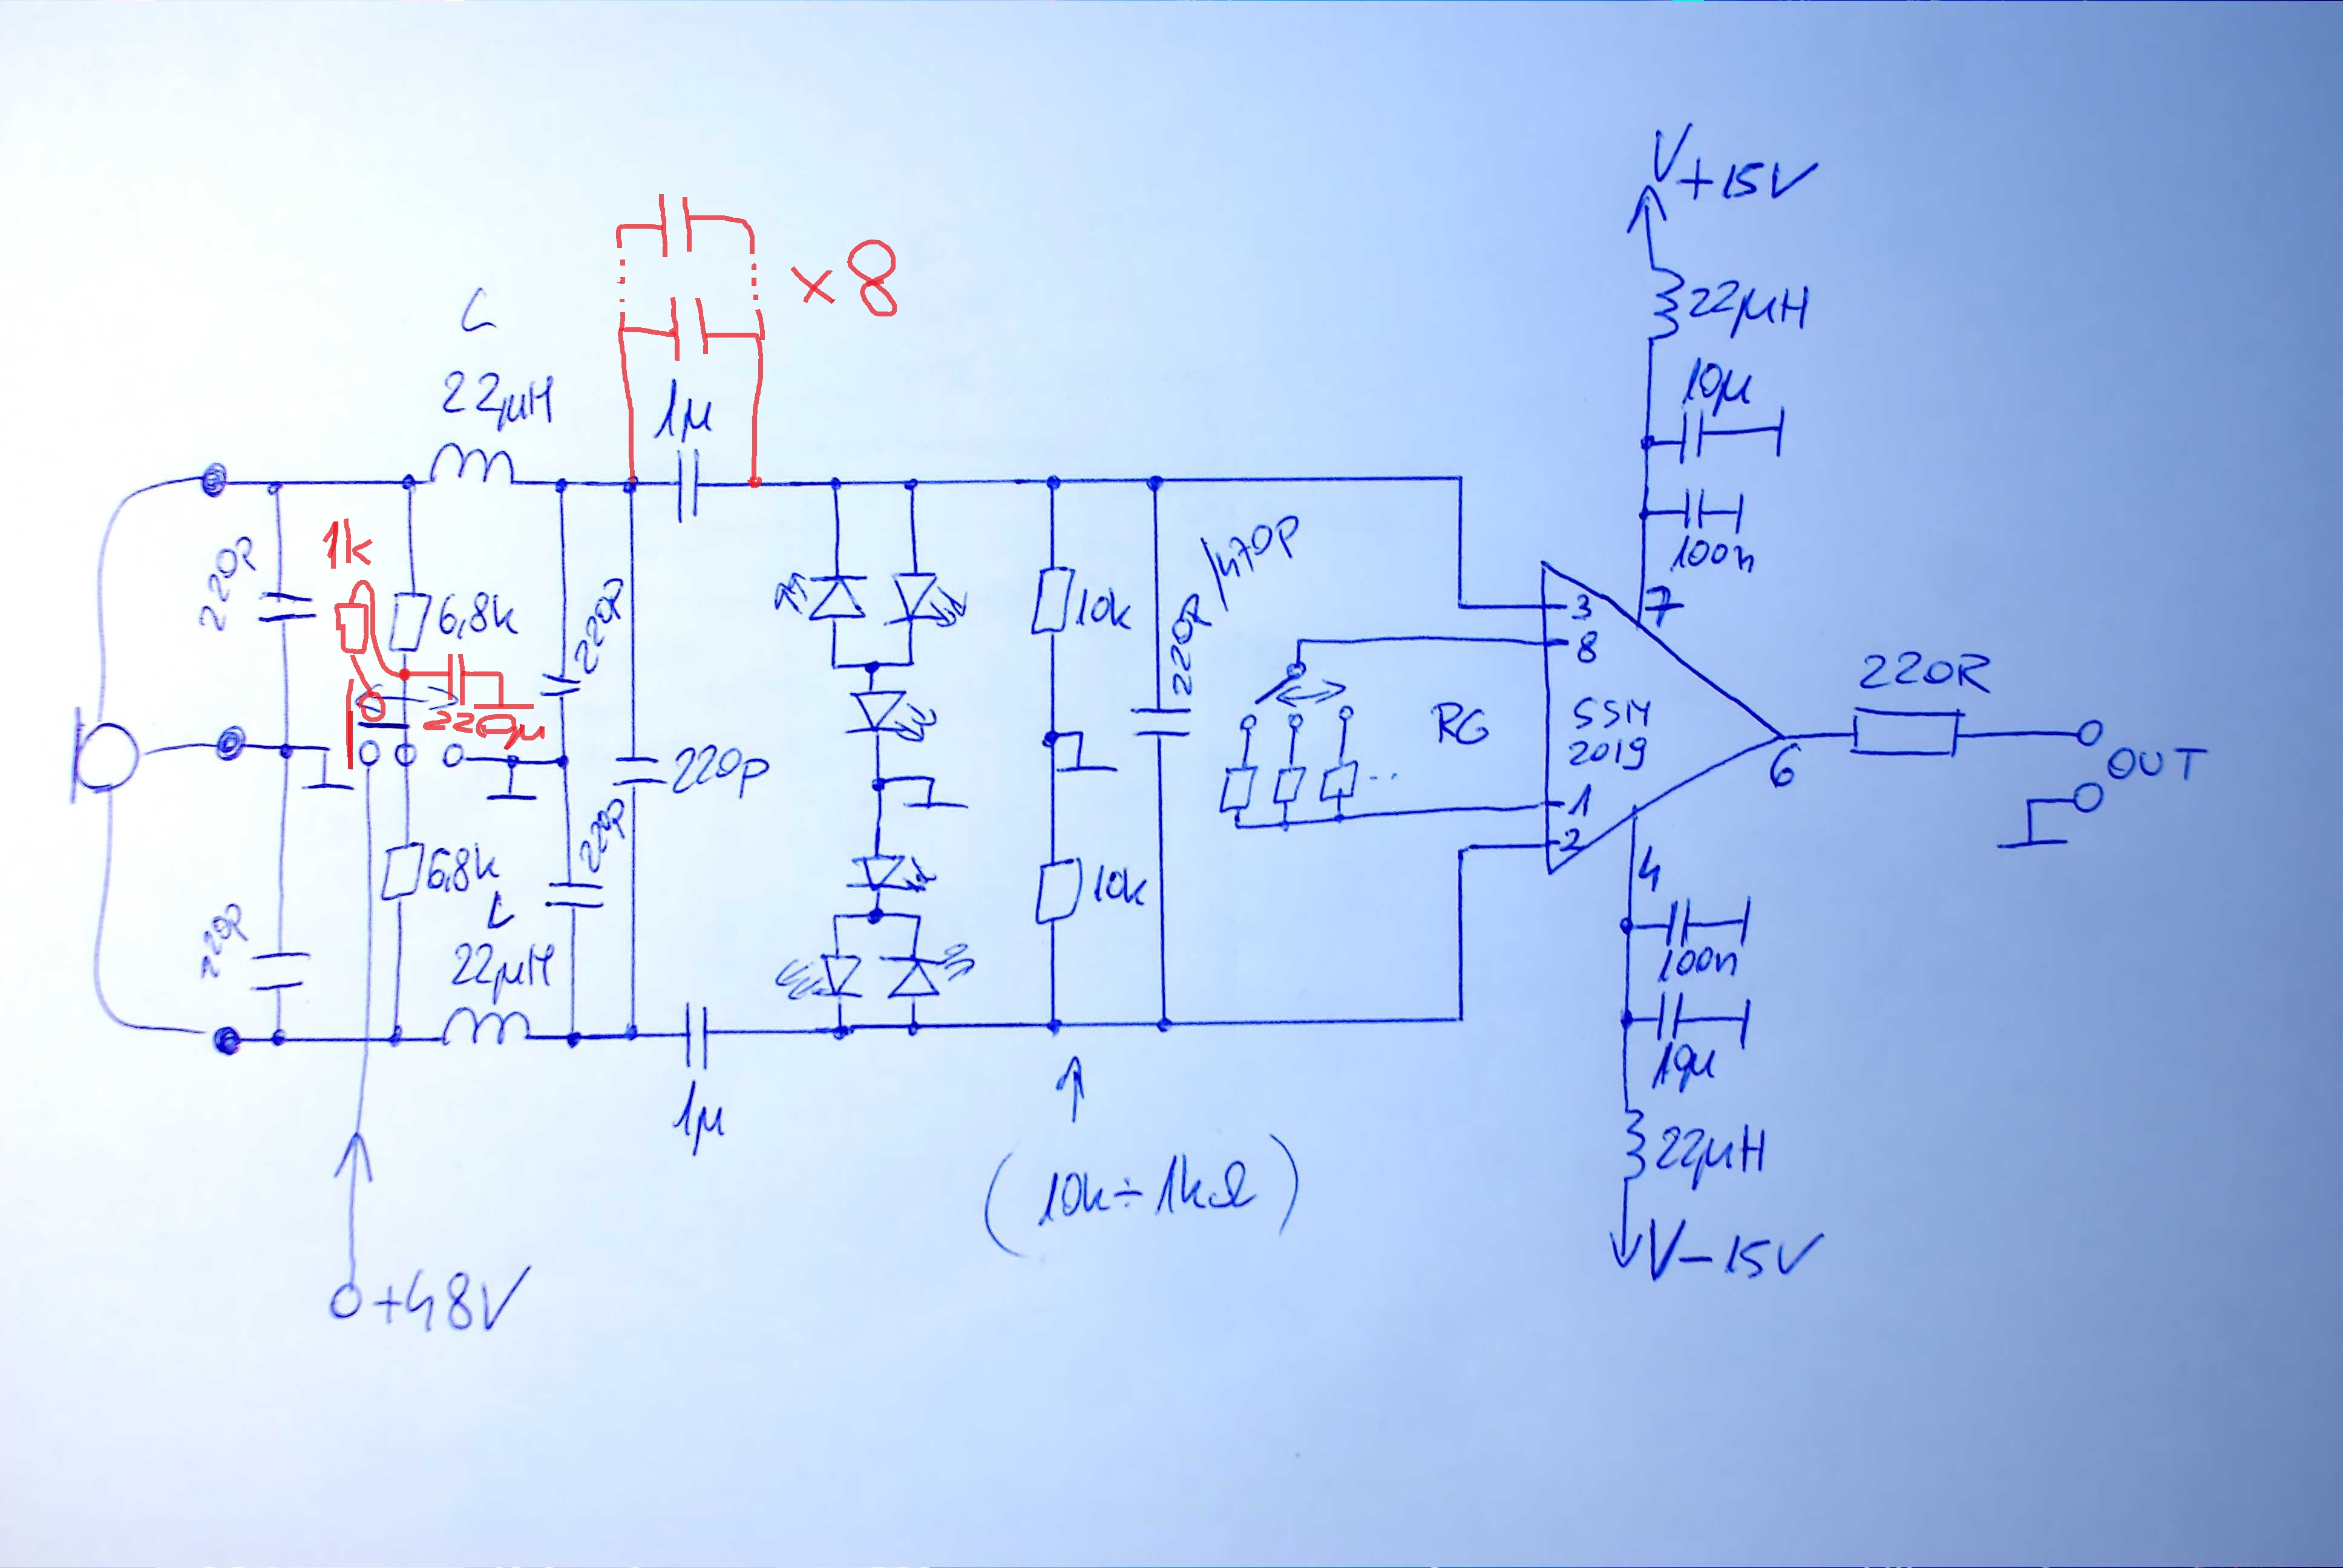 V+15V
22µH
10µ
100n
7
x8
L
22µH
1µ
220p
1k
6,8k
220p
220µ
220p
10k
220p/470p
3
8
RG
SSM
2019
1
2
6
220R
OUT
4
6,8k
L
22µH
220p
220p
10k
100n
10µ
22µH
V-15V
1µ
(10k÷1kΩ)
+48V